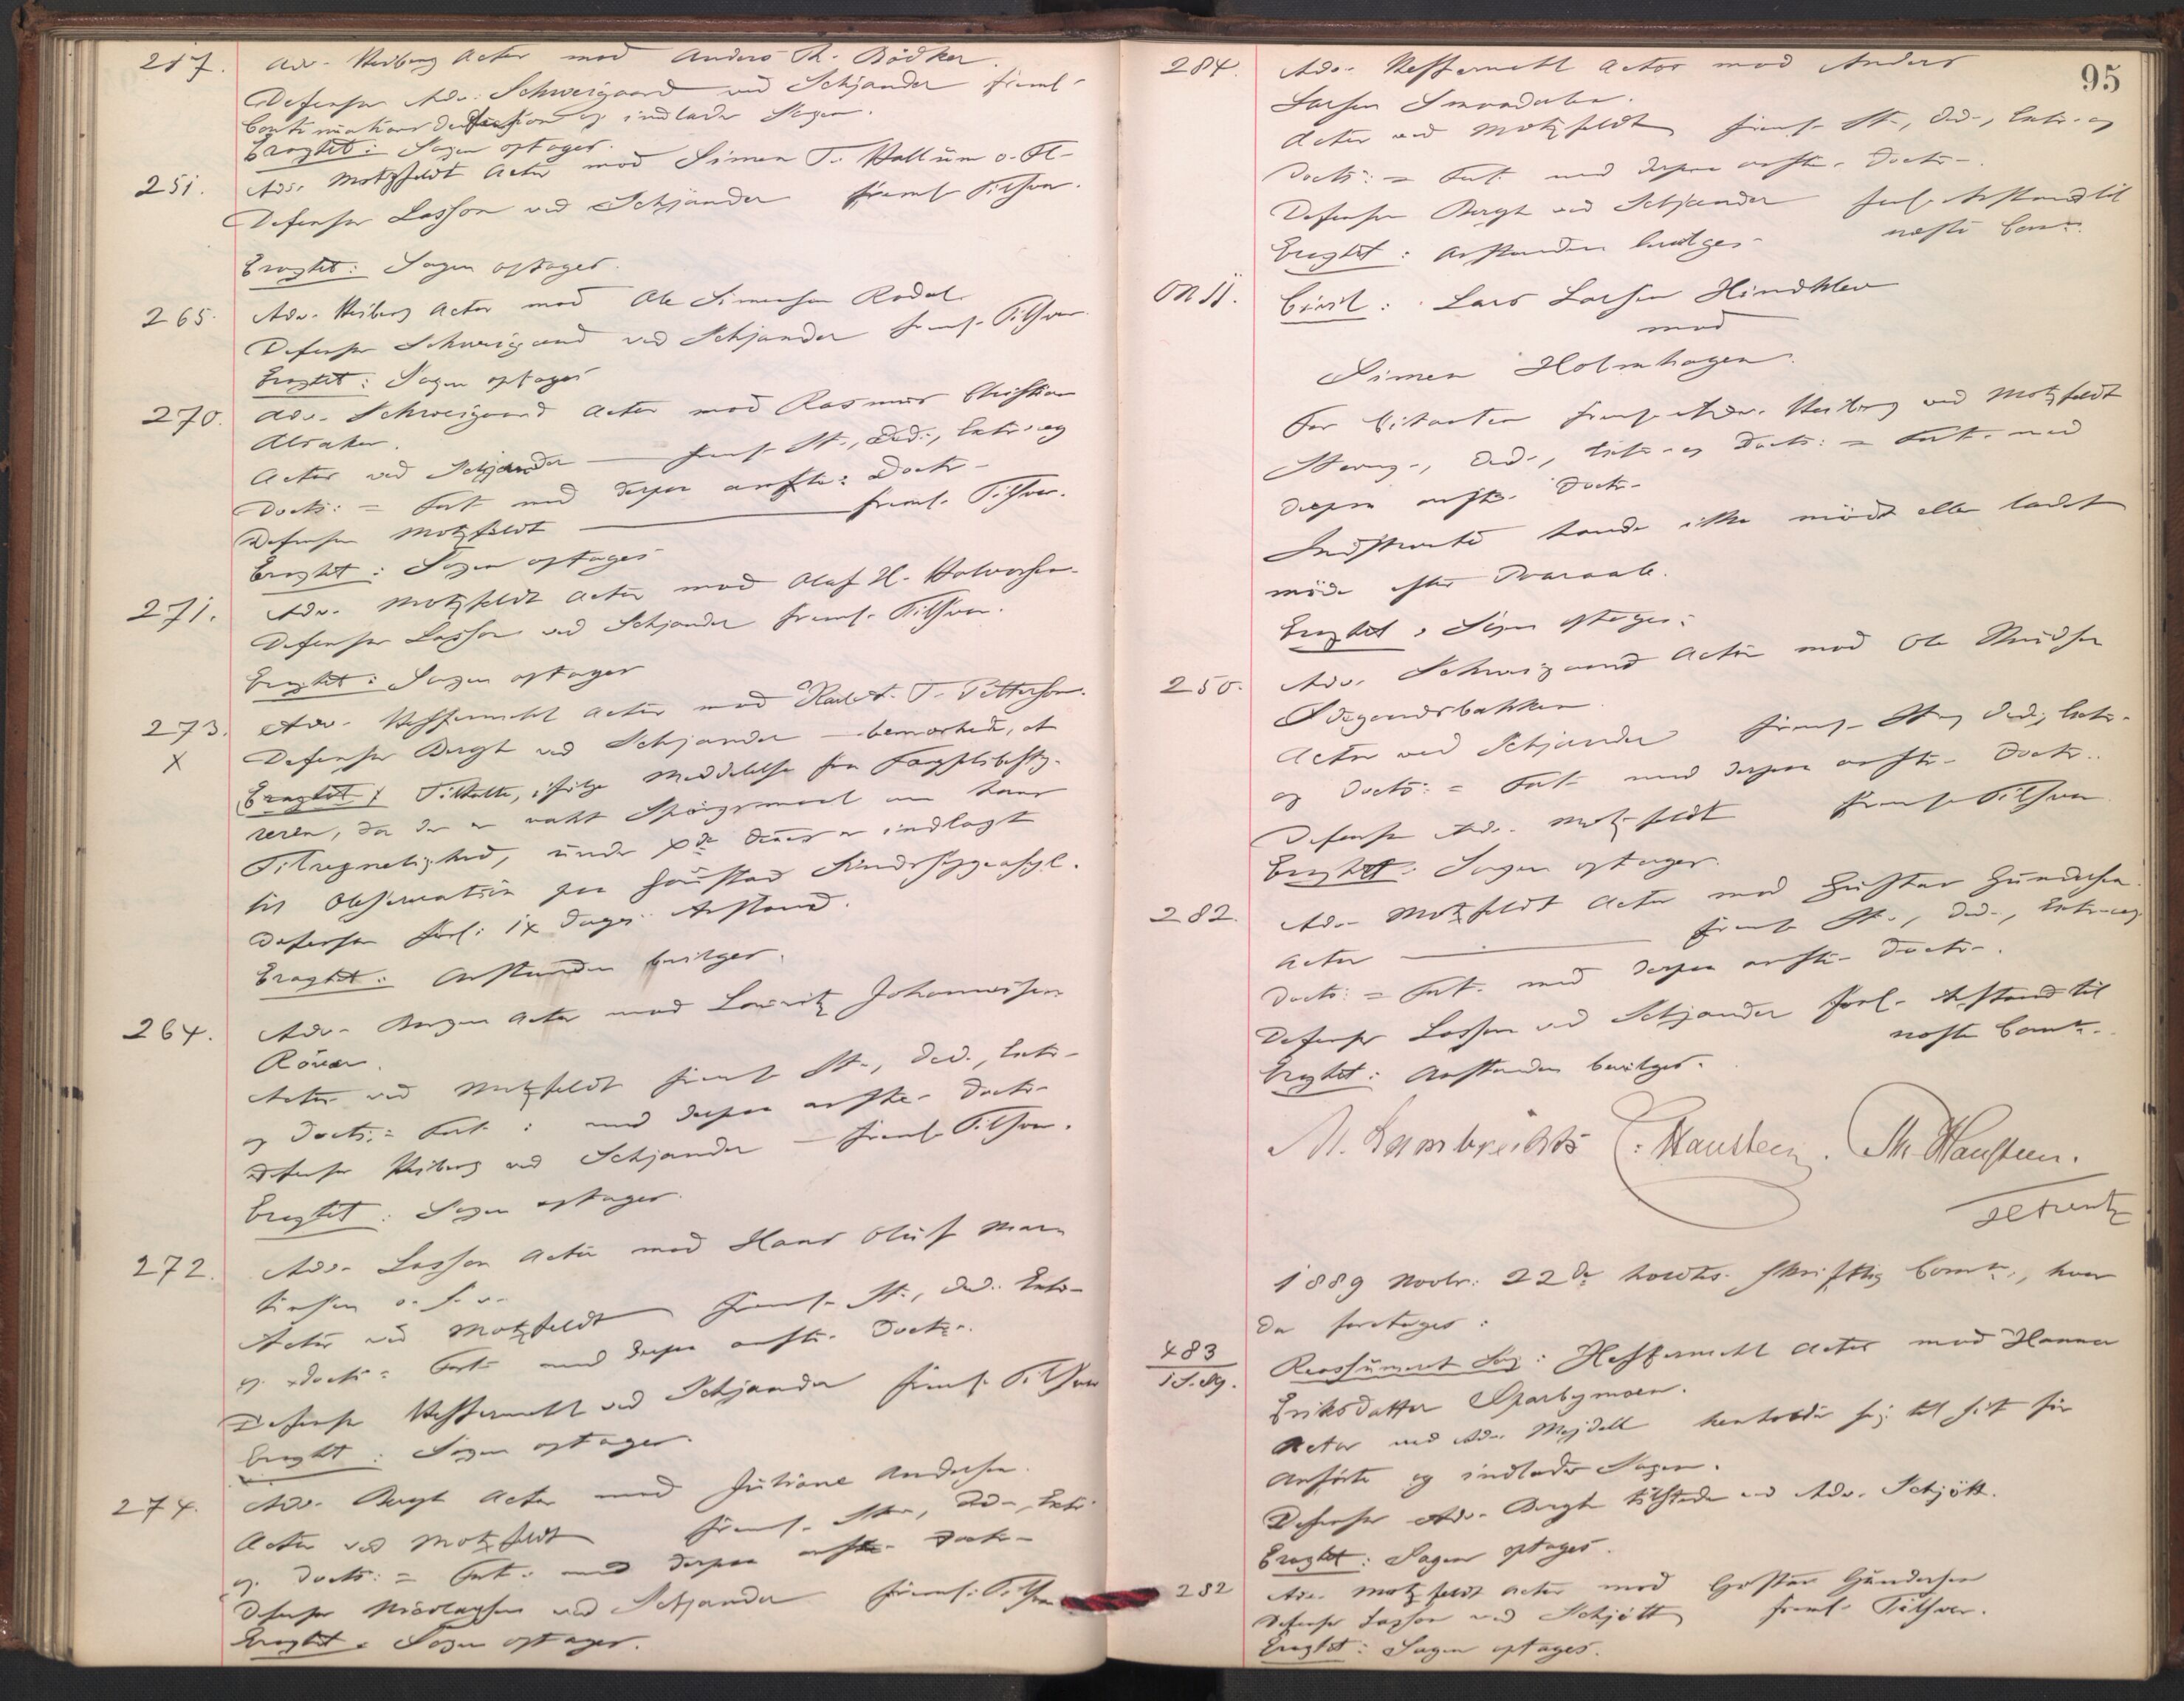 217. Adv. Heiberg Actor mod Anders Th. Bödker.
Defensor Adv. Schweigaard ved Schjander freml.
Continuations og indlader Sagen.
Eragtet: Sagen optages.
251. Adv. Motzfeldt Actor mod Simen T. Hallum o. Fl.
Defensor Lasson ved Schjander freml. Tilsvar.
Eragtet: Sagen optages.
265. Adv. Heiberg Actor mod Ole Simensen Rodal.
Defensor Schweigaard ved Schjander freml. Tilsvar.
Eragtet: Sagen optages
270. Adv. Schweigaard Actor mod Rasmus Christian
Alsaker.
Actor ved Schjander — freml. St., Ded., Extr. og
Docts: = Fort. med derpaa anfte: Doctr.
Defensor Motzfeldt — freml. Tilsvar.
Eragtet: Sagen optages
271. Adv. Motzfeldt Actor mod Olaf H. Halvorsen.
Defensor Lasson ved Schjander freml. Tilsvar.
Eragtet: Sagen optages
273. Adv. Hesselberg Actor mod T. Pettersen.
X Defensor Bergh ved Schjander — bemærkede, at
Eragtet Tiltalte, ifølge Meddelelse fra
da der er vakt Spørgsmaal om hans
Tilregnelighed, under er indlagt
til Observation paa Gaustad Sindssygeasyl.
Defensor forl: 14 Dages Anstand.
Eragtet: Anstanden bevilges.
264. Adv. Actor mod Lauritz Johannessen
Röver.
Actor ved Motzfeldt freml. St., Ded., Extr.
og Docts: = Fort: med derpaa anfte. Doctr.
Defensor Heiberg ved Schjander — freml. Tilsvar.
Eragtet: Sagen optages.
272. Adv. Lasson Actor mod Hans Oluf Mar
tinsen o. s. v.
Actor ved Motzfeldt freml. St., Ded. Extr.
og Docts: = Fort. med derpaa anfte. Doctr.
Defensor ved Schjander freml. Tilsvar
Eragtet: Sagen optages.
274. Adv. Bergh Actor mod Juliane Andersen.
Actor ved Motzfeldt freml. St., Ded., Extr.
og Docts: = Fort. med derpaa anfte. Doctr.
Defensor Nicolaysen ved Schjander freml. Tilsvar
Eragtet: Sagen optages.
95
284. Adv. Actor mod Anders
Larsen
Actor ved Motzfeldt freml. St., Ded., Extr. og
Docts: = Fort. med derpaa anfte. Doctr.
Defensor Bergh ved Schjander forl. Anstand til
næste Cam.
Eragtet: Anstanden bevilges.
Civil: Lars Larsen Hindklev
mod
Simen Holmhagen.
For Citanten freml. Adv. Heiberg ved Motzfeldt
Ded., Extr. og Docts: = Fort. med
derpaa anfte. Doctr.
Indstevnte havde ikke mödt eller ladet
möde efter Paaraab.
Eragtet: Sagen optages.
250. Adv. Schweigaard Actor mod Ole Knudsen
Actor ved Schjander freml. St., Ded., Extr.
og Docts: = Fort. med derpaa anfte. Doctr.
Defensor Adv. Motzfeldt freml. Tilsvar
Eragtet: Sagen optages.
282. Adv. Motzfeldt Actor mod Gustav Gundersen.
Actor — freml. St., Ded., Extr. og
Docts: = Fort. med derpaa anfte. Doctr.
Defensor Lasson ved Schjander forl. Anstand til
næste Cam.
Eragtet: Anstanden bevilges.
M. Lambrechts C. Hansteen. Th. Hansteen.
1889 Novbr. 22de holdtes skriftlig Cam., hvor
da foretages:
483
1 S. Ag. Reassumeret Sag: Actor mod Hanna
Eriksdatter Sparbymoen.
Actor ved Adv. Mejdell henholder sig til sit för
anförte og indlader Sagen.
Defensor Adv. Bergh tilstede ved Adv. Schjött.
Eragtet: Sagen optages.
282 Adv. Motzfeldt Actor mod Gustav Gundersen
Defensor Lasson ved Schjött freml. Tilsvar.
Eragtet: Sagen optages.